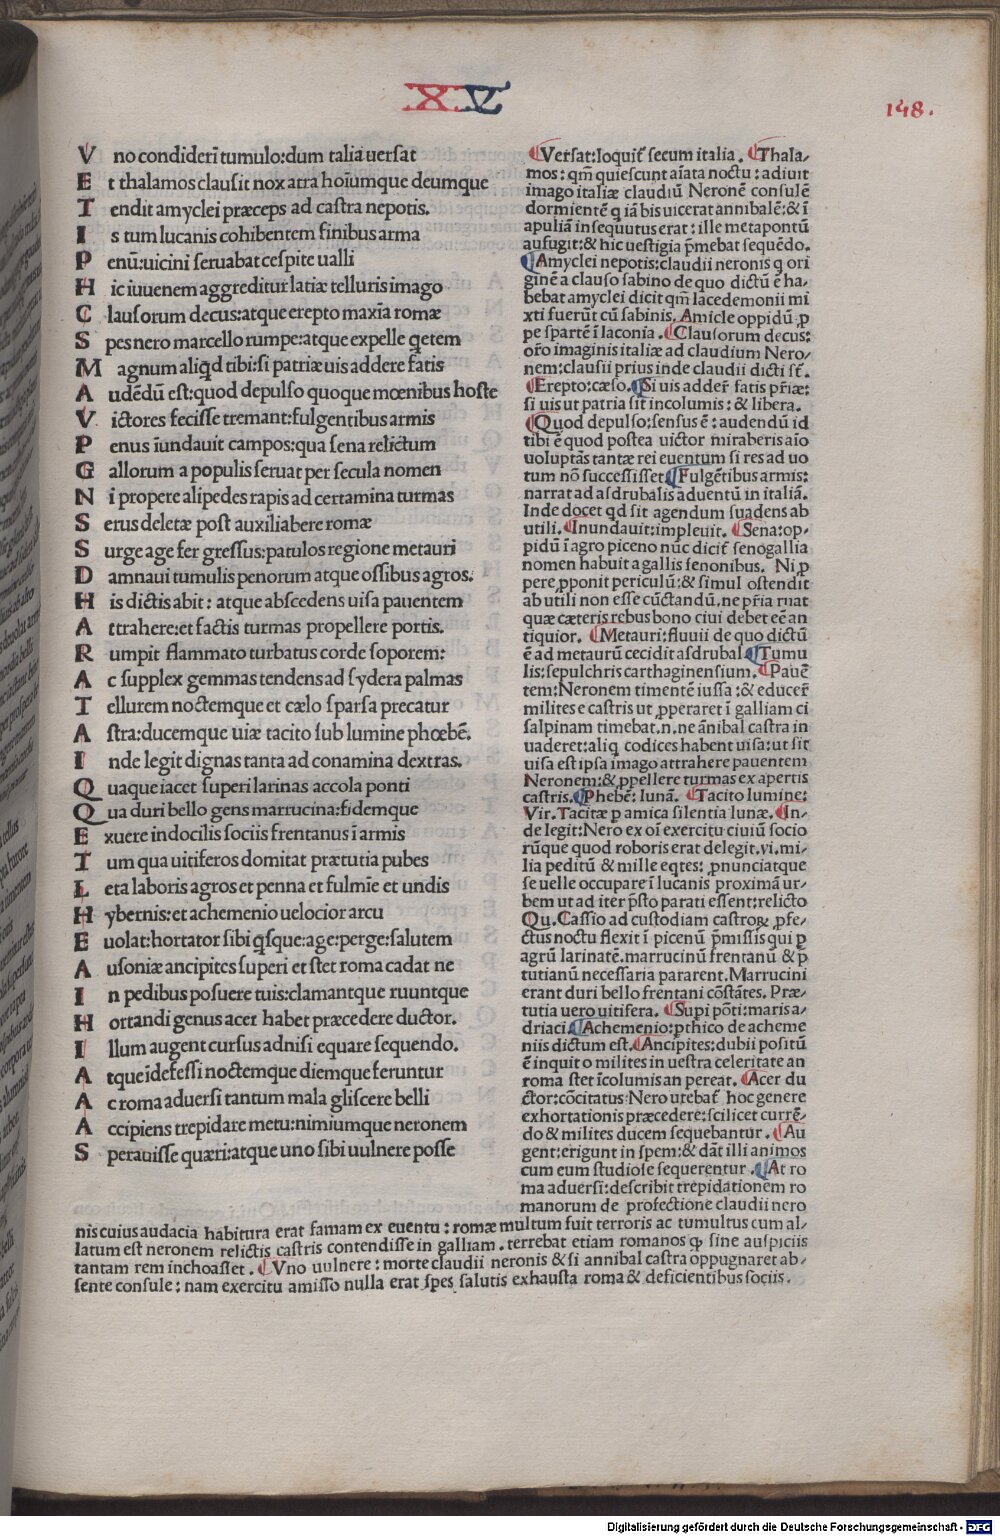 XV
148.
V no condideri̅ tumulo:dum talia uersat
E t thalamos clausit nox atra hoi̅umque deumque
T endit amyclei præceps ad castra nepotis.
I s tum lucanis cohibentem finibus arma
P enu̅:uicini seruabat cespite ualli
H ic iuuenem aggreditur latiæ telluris imago
C lausorum decus:atque erepto maxi̅a romæ
S pes nero marcello rumpe:atque expelle q̨etem
M agnum aliq̨d tibi:si patriæ uis addere fatis
A ude̅du̅ est:quod depulso quoque mœnibus hoste
V ictores fecisse tremant:fulgentibus armis
P enus i̅undauit campos:qua sena relictum
G allorum a populis seruat per secula nomen
N i propere alipedes rapis ad certamina turmas
S erus deletæ post auxiliabere romæ
S urge age fer gressus:patulos regione metauri
D amnaui tumulis penorum atque ossibus agros.
H is dictis abit: atque abscedens uisa pauentem
A ttrahere:et factis turmas propellere portis.
R umpit flammato turbatus corde soporem:
A c supplex gemmas tendens ad sydera palmas
T ellurem noctemque et cælo sparsa precatur
A stra:ducemque uiæ tacito sub lumine phœbe̅.
I nde legit dignas tanta ad conamina dextras.
Q uaque iacet superi larinas accola ponti
Q ua duri bello gens marrucina:fidemque
E xuere indocilis sociis frentanus i̅ armis
T um qua uitiferos domitat prætutia pubes
L eta laboris agros et penna et fulmi̅e et undis
H ybernis:et achemenio uelocior arcu
E uolat:hortator sibi q̨sque:age:perge:salutem
A usoniæ ancipites superi et stet roma cadat ne
I n pedibus posuere tuis:clamantque ruuntque
H ortandi genus acer habet præcedere ductor.
I llum augent cursus adnisi equare sequendo.
A tque i̅defessi noctemque diemque feruntur
A c roma aduersi tantum mala gliscere belli
A ccipiens trepidare metu:nimiumque neronem
S perauisse quæri:atque uno sibi uulnere posse
¶Versat:loquit̃ secum italia. ¶Thala,
mos: qm̅ quiescunt ai̅ata noctu: adiuit
imago italiæ claudiu̅ Nerone̅ consule̅
dormiente̅ q ia̅ bis uicerat annibale̅:& i̅
apulia̅ insequutus erat: ille metapontu̅
aufugit:& hic uestigia p̅mebat seque̅do.
¶Amyclei nepotis:claudii neronis q ori
gine̅ a clauso sabino de quo dictu̅ e̅ ha,
bebat amyclei dicit qm̅ lacedemonii mi
xti fueru̅t cu̅ sabinis. Amicle oppidu̅ p
pe sparte̅ i̅ laconia. ¶Clausorum decus:
or̅o imaginis italiæ ad claudium Nero,
nem:clausii prius inde claudii dicti st̅.
¶Erepto:cæso. ¶Si uis adder̃ fatis pr̃iæ:
si uis ut patria sit incolumis: & libera.
¶Quod depulso:sensus e̅: audendu̅ id
tibi e̅ quod postea uictor miraberis aio̅
uoluptas̅ tantæ rei euentum si res ad uo
tum no̅ successisset ¶Fulge̅tibus armis:
narrat ad asdrubalis aduentu̅ in italia̅.
Inde docet qd sit agendum suadens ab
utili. ¶Inundauit:impleuit. ¶Sena:op,
pidu̅ i̅ agro piceno nu̅c dicit̃ senogallia
nomen habuit a gallis senonibus. Ni p
pere.pponit periculu̅:& simul ostendit
ab utili non esse cu̅ctandu̅.ne pr̃ia ruat
quæ cæteris rebus bono ciui debet ee̅ an
tiquior. ¶Metauri:fluuii de quo dictu̅
e̅ ad metauru̅ cecidit asdrubal ¶Tumu
lis:sepulchris carthaginensium. ¶Paue̅
tem:Neronem timente̅ iussa:& educer̃
milites e castris ut pperaret i̅ galliam ci
salpinam timebat.n.ne a̅nibal castra in
uaderet:aliq codices habent uisa:ut sit
uisa est ipsa imago attrahere pauentem
Neronem:& ppellere turmas ex apertis
castris. ¶Phebe̅: luna̅. ¶Tacito lumine:
Vir. Tacitæ p amica silentia lunæ. ¶In,
de legit:Nero ex oi̅ exercitu ciuiu̅ socio
ru̅que quod roboris erat delegit.vi.mi,
lia peditu̅ & mille eqtes: pnunciatque
se uelle occupare i̅ lucanis proxima̅ ur,
bem ut ad iter p̅sto parati essent:relicto
Qu. Cassio ad custodiam castroꝝ pfe,
ctus noctu flexit i̅ picenu̅ p̅missis qui p
agru̅ larinate̅.marrucinu̅ frentanu̅ & p̅
tutianu̅ necessaria pararent. Marrucini
erant duri bello frentani co̅sta̅tes. Præ,
tutia uero uitifera. ¶Supi po̅ti:maris a,
driaci. ¶Achemenio:pthico de acheme
niis dictum est. ¶Ancipites:dubii positu̅
e̅ inquit o milites in uestra celeritate an
roma stet i̅columis an pereat. ¶Acer du
ctor:co̅citatus:Nero utebat̃ hoc genere
exhortationis præcedere:scilicet curre̅,
do & milites ducem sequebantur. ¶Au
gent:erigunt in spem:& da̅t illi animos
cum eum studiose sequerentur. ¶At ro
ma aduersi:describit trepidationem ro
manorum de profectione claudii nero
nis cuius audacia habitura erat famam ex euentu: romæ multum fuit terroris ac tumultus cum al,
latum est neronem relictis castris contendisse in galliam. terrebat etiam romanos q̨ sine auspiciis
tantam rem inchoasset. ¶Vno uulnere: morte claudii neronis & si annibal castra oppugnaret ab,
sente consule: nam exercitu amisso nulla erat spes salutis exhausta roma & deficientibus sociis.
Digitalisierung gefördert durch die Deutsche Forschungsgemeinschaft - DFG